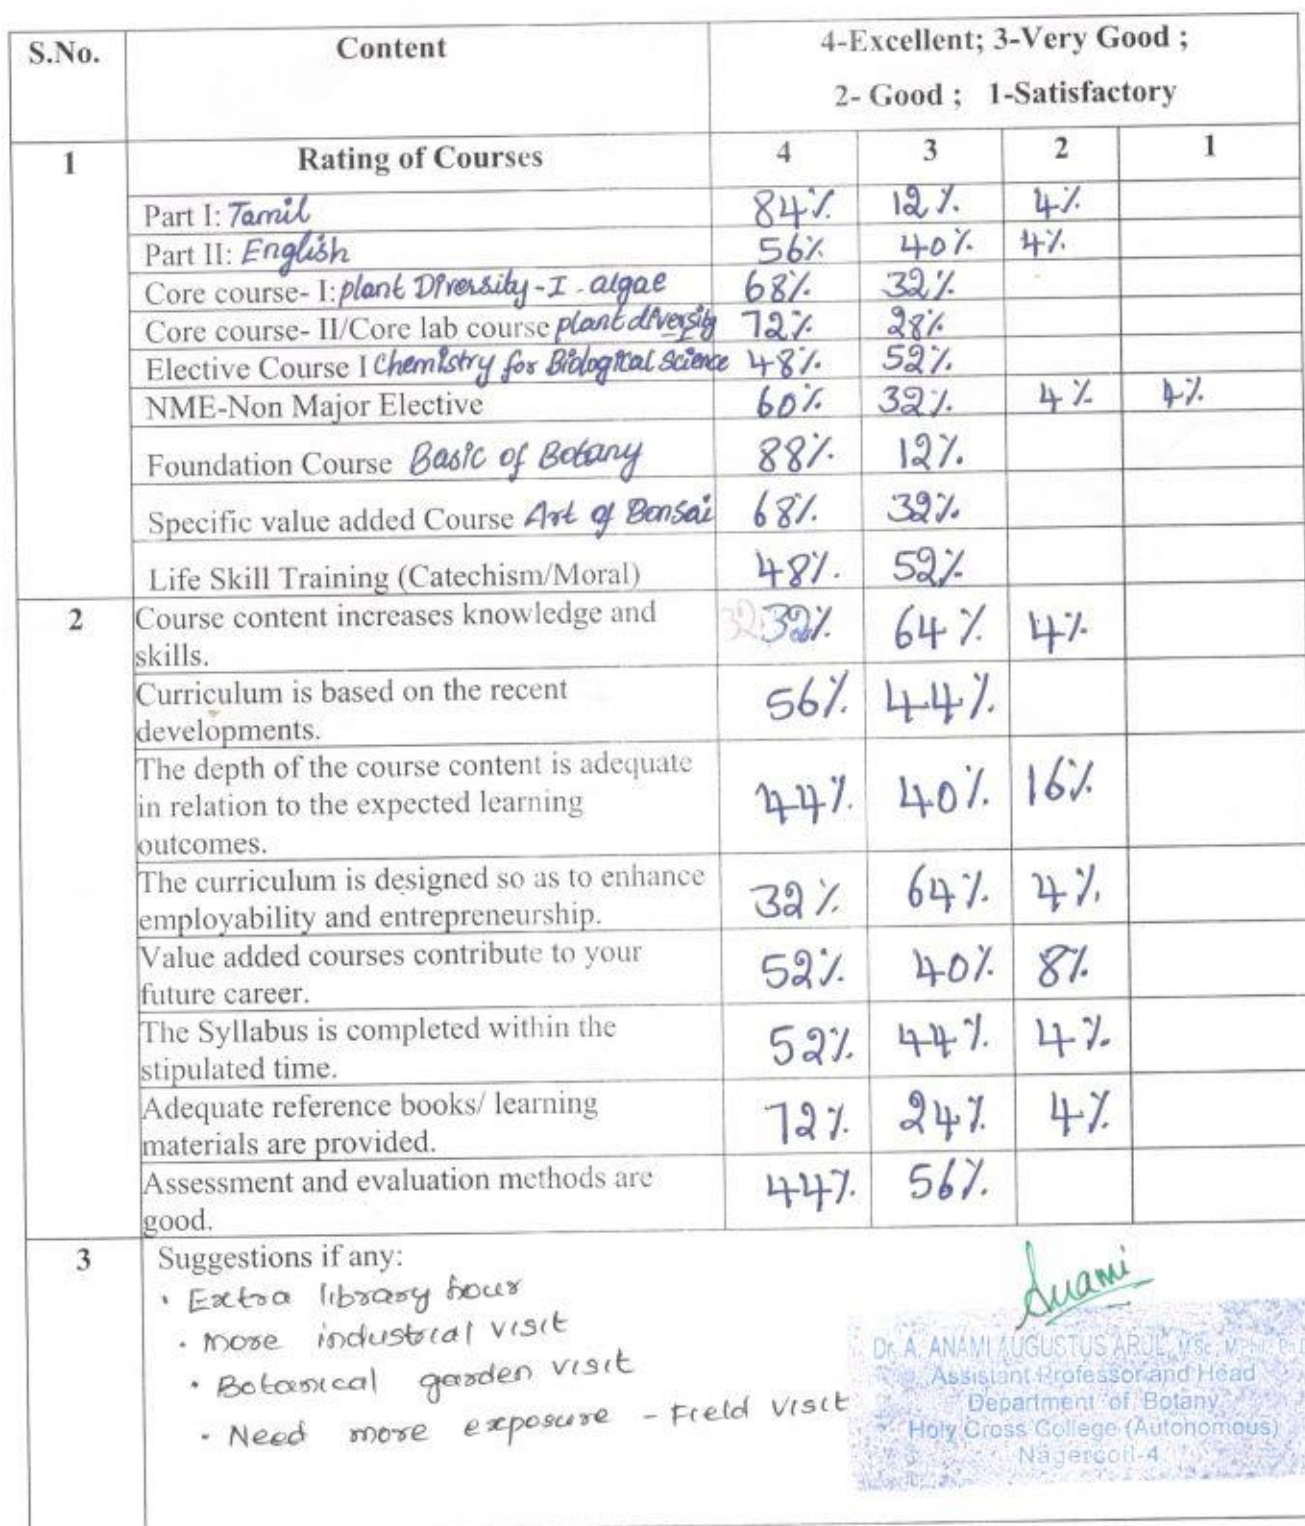 S.No. Content 4-Excellent; 3-Very Good ;
2- Good ; 1-Satisfactory
1 Rating of Courses 4 3 2 1
Part I: Tamil 84% 12% 4%
Part II: English 56% 40% 4%
Core course- I: plant Diversity - I - algae 68% 32%
Core course- II/Core lab course plant diversity 72% 28%
Elective Course I Chemistry for Biological Science 48% 52%
NME-Non Major Elective 60% 32% 4% 4%
Foundation Course Basic of Botany 88% 12%
Specific value added Course Art of Bonsai 68% 32%
Life Skill Training (Catechism/Moral) 48% 52%
2 Course content increases knowledge and
skills. 32 32% 64% 4%
Curriculum is based on the recent
developments. 56% 44%
The depth of the course content is adequate
in relation to the expected learning 44% 40% 16%
outcomes.
The curriculum is designed so as to enhance
employability and entrepreneurship. 32% 64% 4%
Value added courses contribute to your
future career. 52% 40% 8%
The Syllabus is completed within the
stipulated time. 52% 44% 4%
Adequate reference books/ learning
materials are provided. 72% 24% 4%
Assessment and evaluation methods are
good. 44% 56%
3 Suggestions if any:
• Extra library hour
• more industrial visit
• Botanical garden visit
• Need more exposure - Field visit
Anami
Dr. A. ANAMI AUGUSTUS ARUL, MSc., MPhil., Ph.D
Assistant Professor and Head
Department of Botany
Holy Cross College (Autonomous)
Nagercoil-4